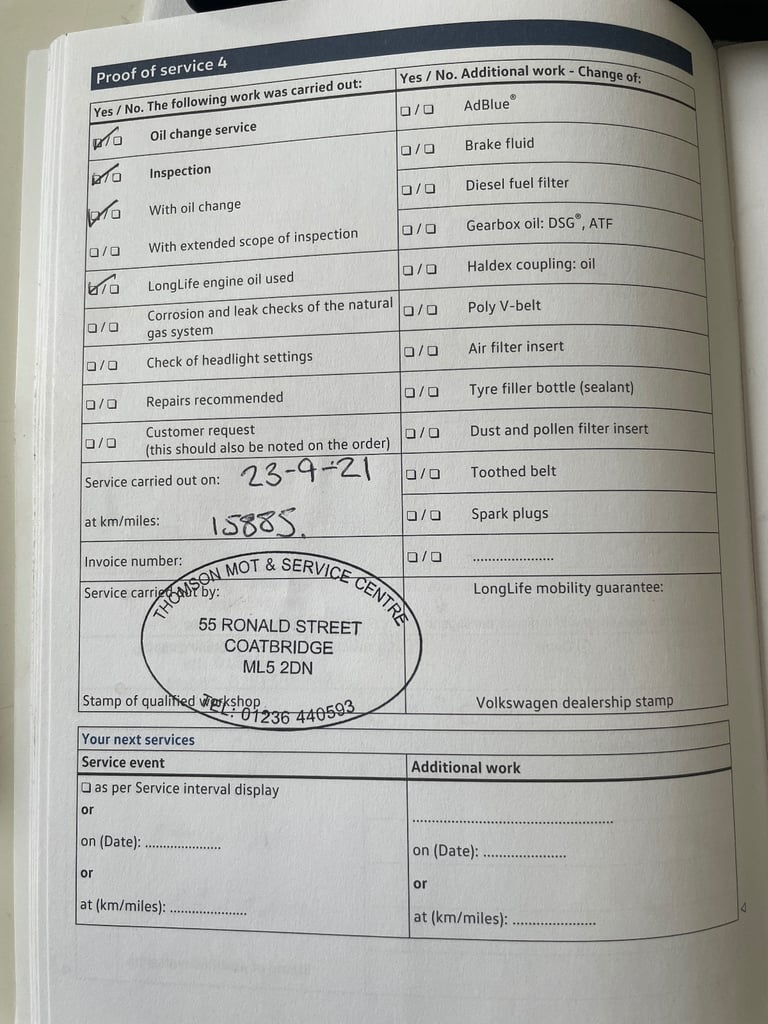 Proof of service 4
Yes / No. The following work was carried out:
☑/☐ Oil change service
☑/☐ Inspection
☑/☐ With oil change
☐/☐ With extended scope of inspection
☑/☐ LongLife engine oil used
☐/☐ Corrosion and leak checks of the natural
gas system
☐/☐ Check of headlight settings
☐/☐ Repairs recommended
☐/☐ Customer request
(this should also be noted on the order)
Service carried out on: 23-9-21
at km/miles: 15885.
Invoice number:
Service carried out by:
THOMSON MOT & SERVICE CENTRE
55 RONALD STREET
COATBRIDGE
ML5 2DN
TEL: 01236 440593
Stamp of qualified workshop
Yes / No. Additional work - Change of:
☐/☐ AdBlue®
☐/☐ Brake fluid
☐/☐ Diesel fuel filter
☐/☐ Gearbox oil: DSG®, ATF
☐/☐ Haldex coupling: oil
☐/☐ Poly V-belt
☐/☐ Air filter insert
☐/☐ Tyre filler bottle (sealant)
☐/☐ Dust and pollen filter insert
☐/☐ Toothed belt
☐/☐ Spark plugs
☐/☐ ....................
LongLife mobility guarantee:
Volkswagen dealership stamp
Your next services
Service event
☐ as per Service interval display
or
on (Date): ....................
or
at (km/miles): ....................
Additional work
..................................................
on (Date): ....................
or
at (km/miles): ....................